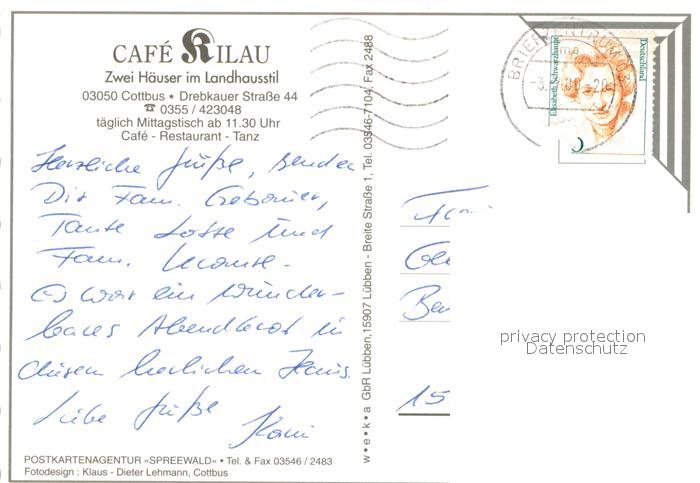 CAFÉ KILAU
Zwei Häuser im Landhausstil
03050 Cottbus ⋆ Drebkauer Straße 44
☎ 0355 / 423048
täglich Mittagstisch ab 11.30 Uhr
Café - Restaurant - Tanz
Herzliche Grüße, senden
Dir Fam.
Tante Lotte und
Fam.
Es war ein wunder-
bares Abendbrot in
diesem herrlichen Haus.
Liebe Grüße
POSTKARTENAGENTUR »SPREEWALD« • Tel. & Fax 03546 / 2483
Fotodesign : Klaus - Dieter Lehmann, Cottbus
w•e•k•a GbR Lübben,15907 Lübben - Breite Straße 1, Tel. 03546-7104, Fax 2488
BRIEFZENTRUM 03
Deutschland
Elisabeth Schwarzhaupt
15
privacy protection
Datenschutz